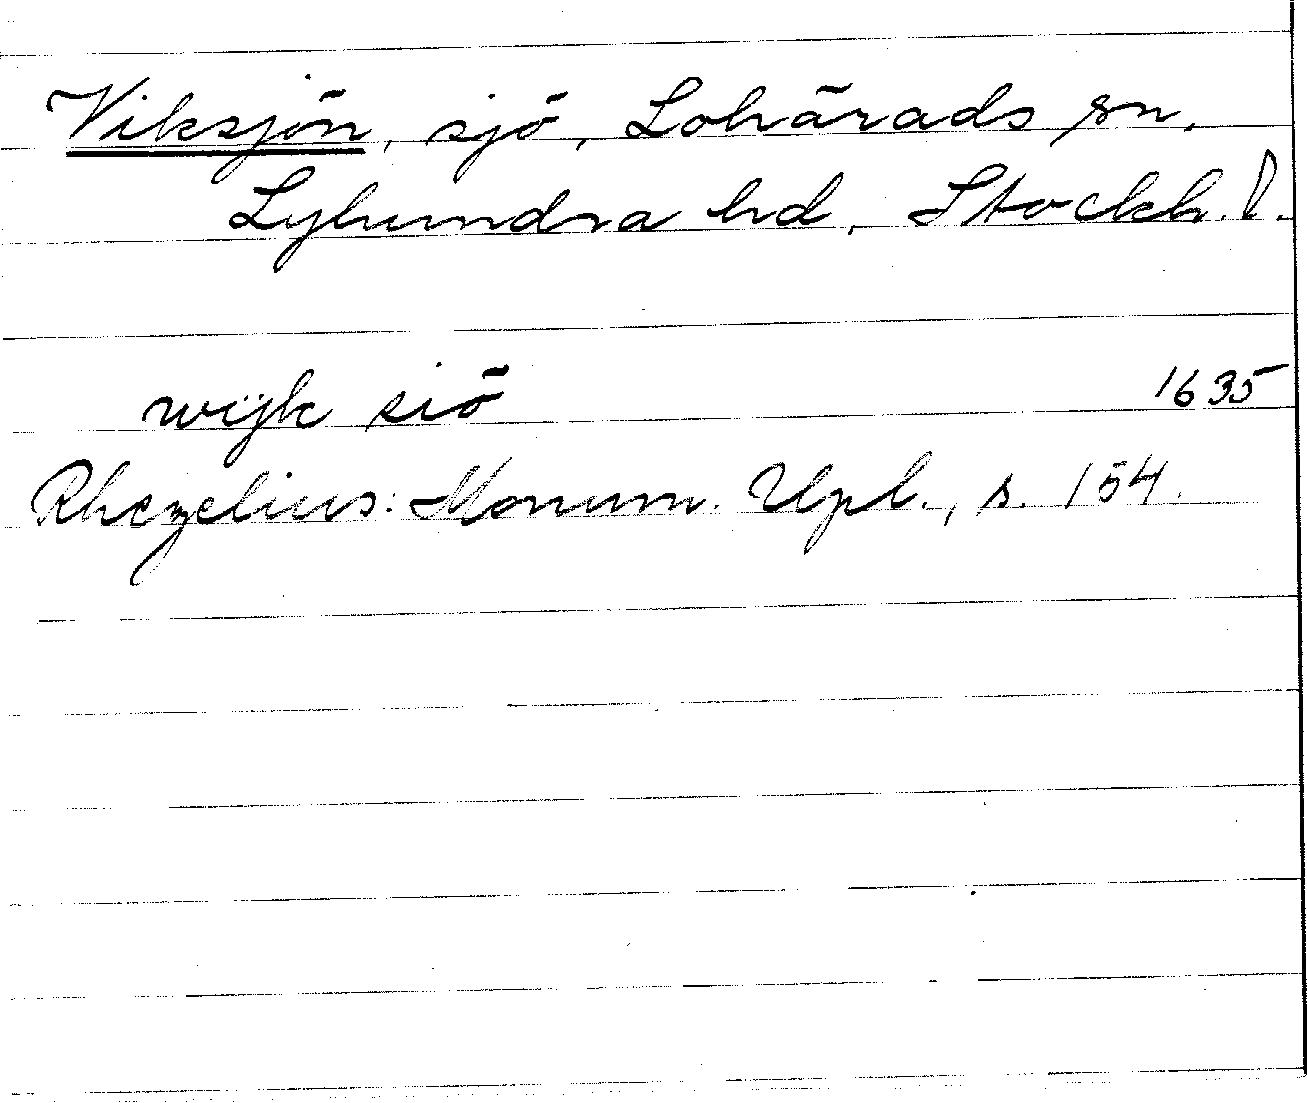 Viksjön, sjö, Lohärads sn,
Lyhundra hd, Stockh. l.
wijk siö 1635
Rhezelius: Monum. Upl., s. 154.